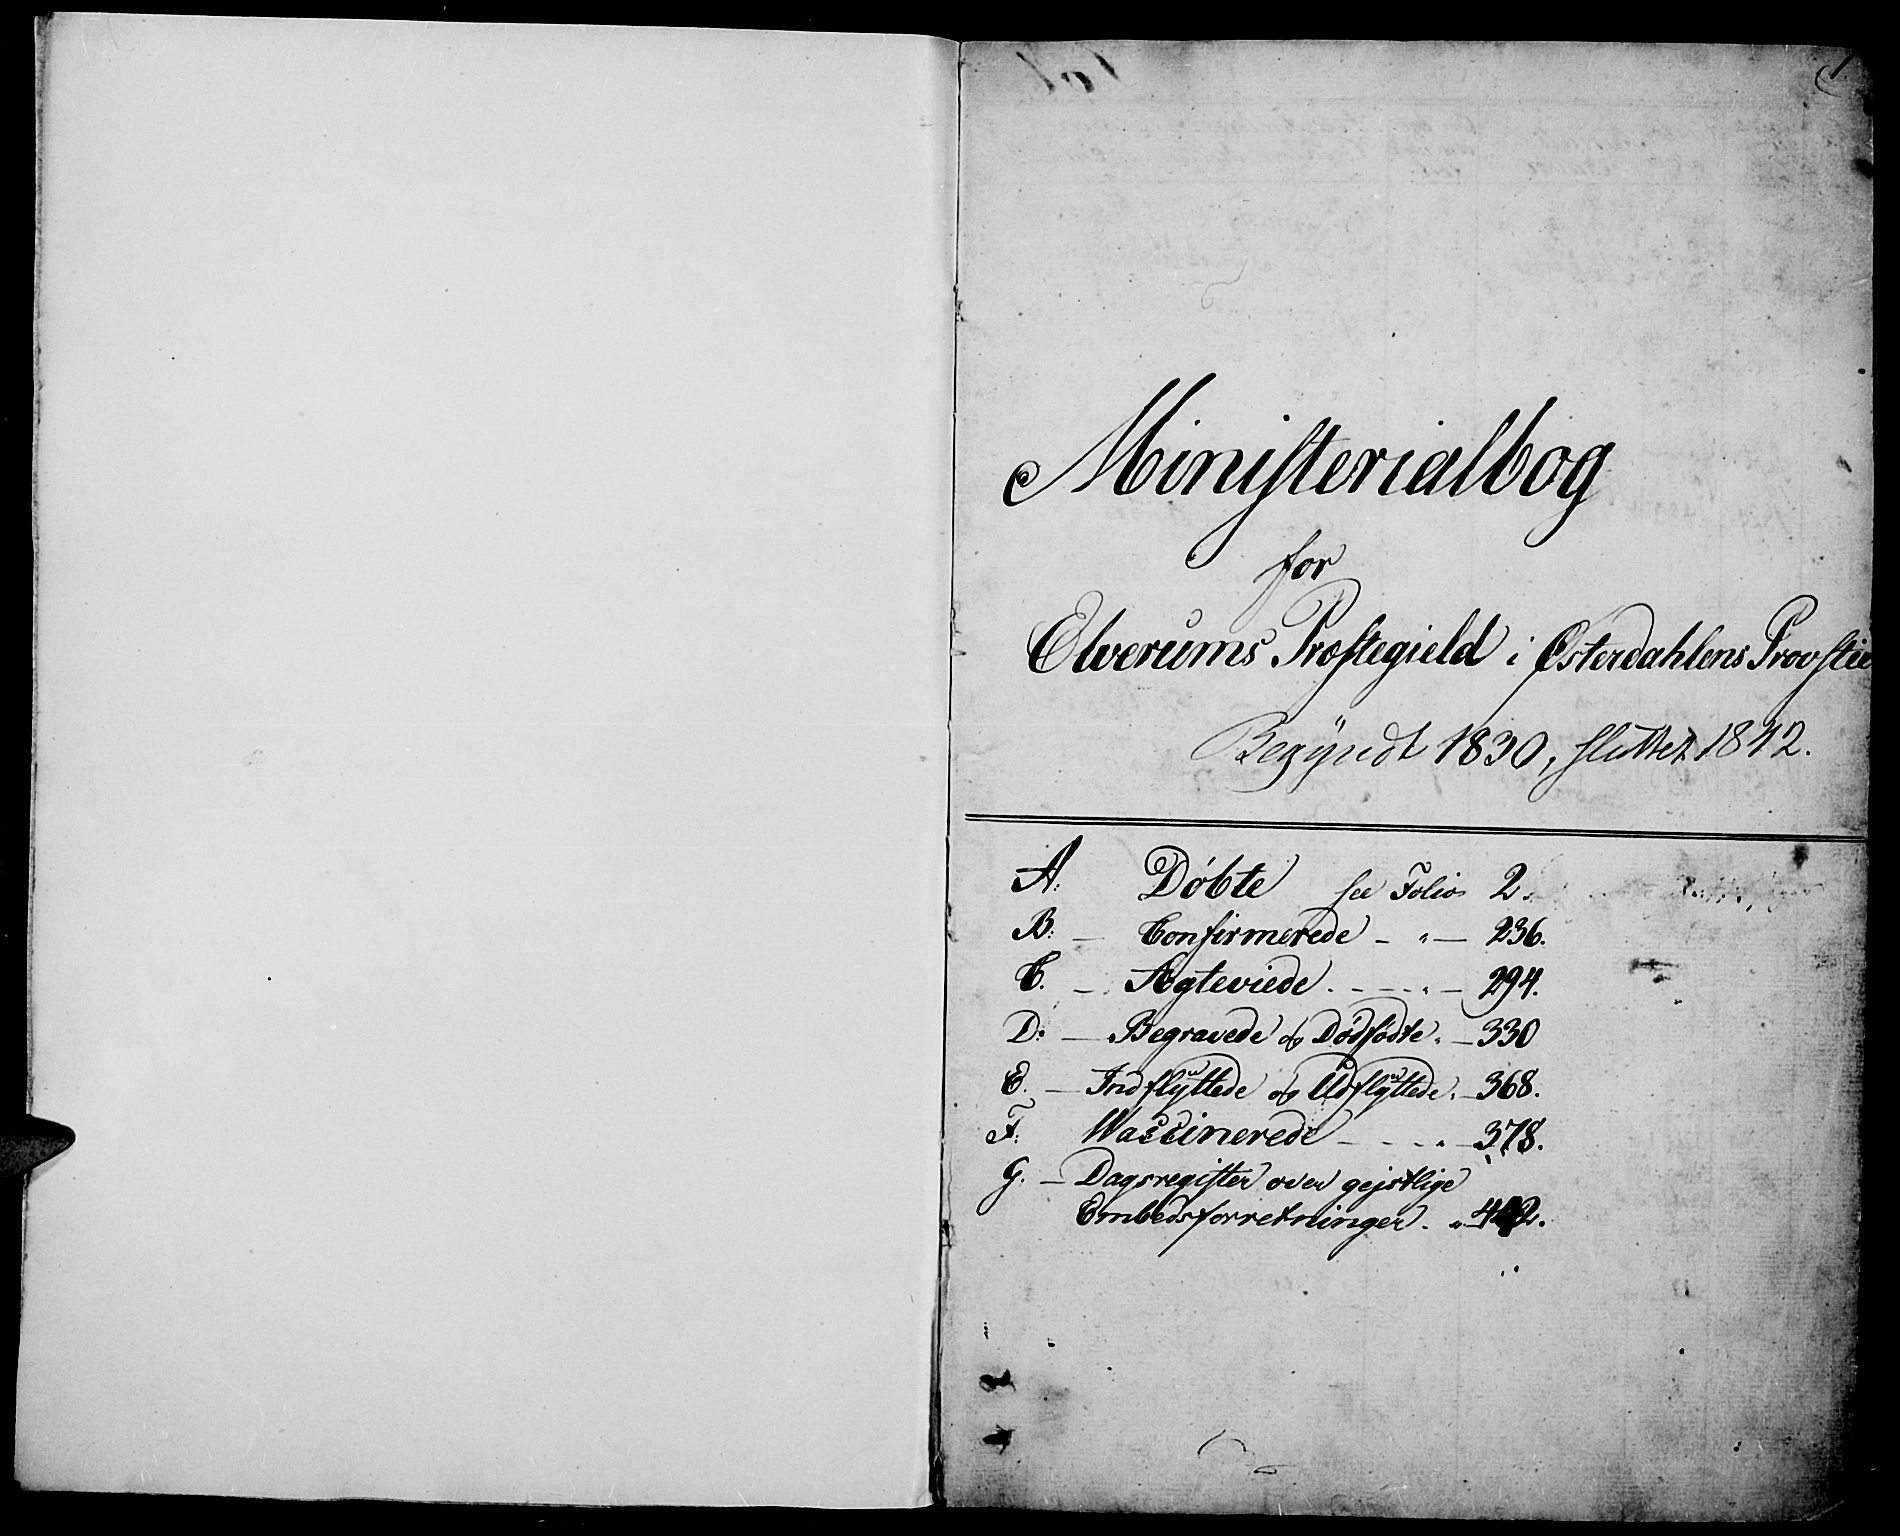 1
Ministerialbog
for
Elverums Præstegield i Østerdahlens Provstie
Begÿndt 1830, sluttet 1842.
A: Döbte see Folio 2.
B: — Confirmerede - „ — 236.
C. — Ægteviede . - - - „ — 294.
D: — Begravede og Dödfödte. „ — 330
E. — Indflyttede og Udflyttede. — 368.
F: Vaccinerede - - - „ — 378.
G. — Dagsregister over gejstlige
Embedsforretninger. „ —